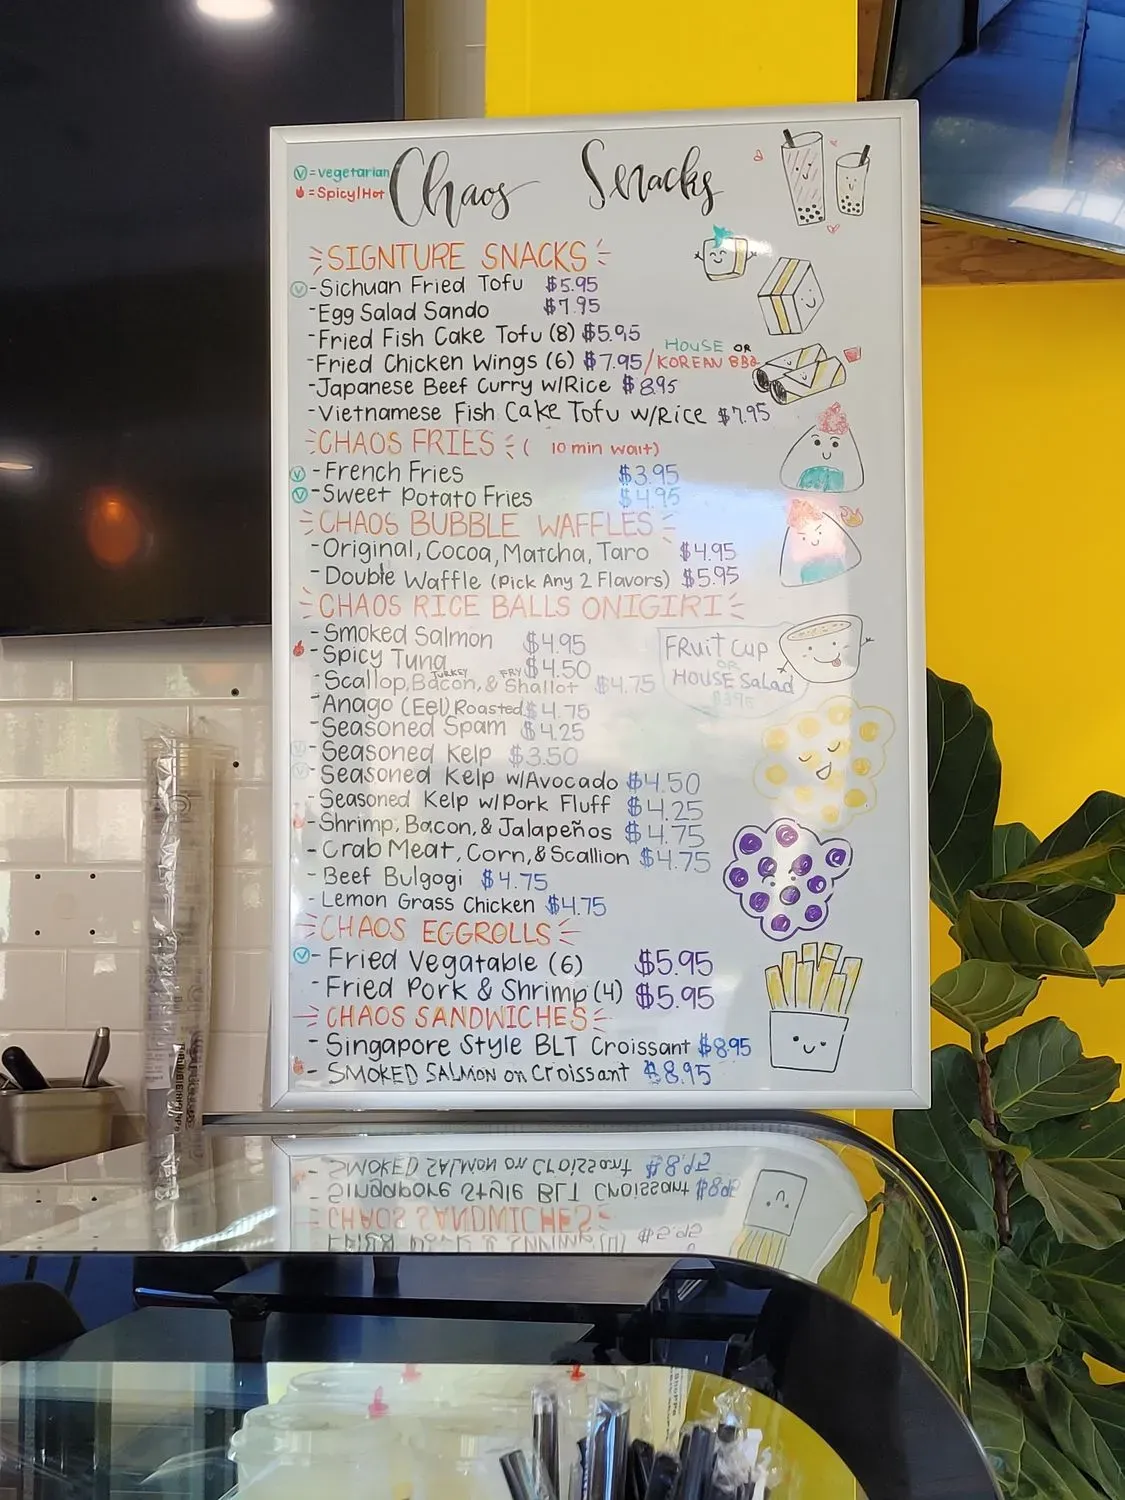 Ⓥ = vegetarian
= Spicy/Hot
Chaos Snacks
SIGNTURE SNACKS
Ⓥ - Sichuan Fried Tofu $5.95
- Egg Salad Sando $7.95
- Fried Fish Cake Tofu (8) $5.95
- Fried Chicken Wings (6) $7.95 / HOUSE OR KOREAN BBQ
- Japanese Beef Curry w/Rice $8.95
- Vietnamese Fish Cake Tofu w/Rice $7.95
CHAOS FRIES ( 10 min wait)
Ⓥ - French Fries $3.95
Ⓥ - Sweet Potato Fries $4.95
CHAOS BUBBLE WAFFLES
- Original, Cocoa, Matcha, Taro $4.95
- Double Waffle (Pick Any 2 Flavors) $5.95
CHAOS RICE BALLS ONIGIRI
- Smoked Salmon $4.95
- Spicy Tuna $4.50
TURKEY FRY
- Scallop, Bacon, & Shallot $4.75
Anago (Eel) Roasted $4.75
- Seasoned Spam $4.25
Ⓥ - Seasoned Kelp $3.50
Ⓥ - Seasoned Kelp w/Avocado $4.50
- Seasoned Kelp w/Pork Fluff $4.25
- Shrimp, Bacon, & Jalapeños $4.75
- Crab Meat, Corn, & Scallion $4.75
- Beef Bulgogi $4.75
- Lemon Grass Chicken $4.75
FRuit Cup
OR
HOUSE Salad
$3.95
CHAOS EGGROLLS
Ⓥ - Fried Vegatable (6) $5.95
- Fried Pork & Shrimp (4) $5.95
CHAOS SANDWICHES
- Singapore Style BLT Croissant $8.95
- SMOKED SALMON on Croissant $8.95